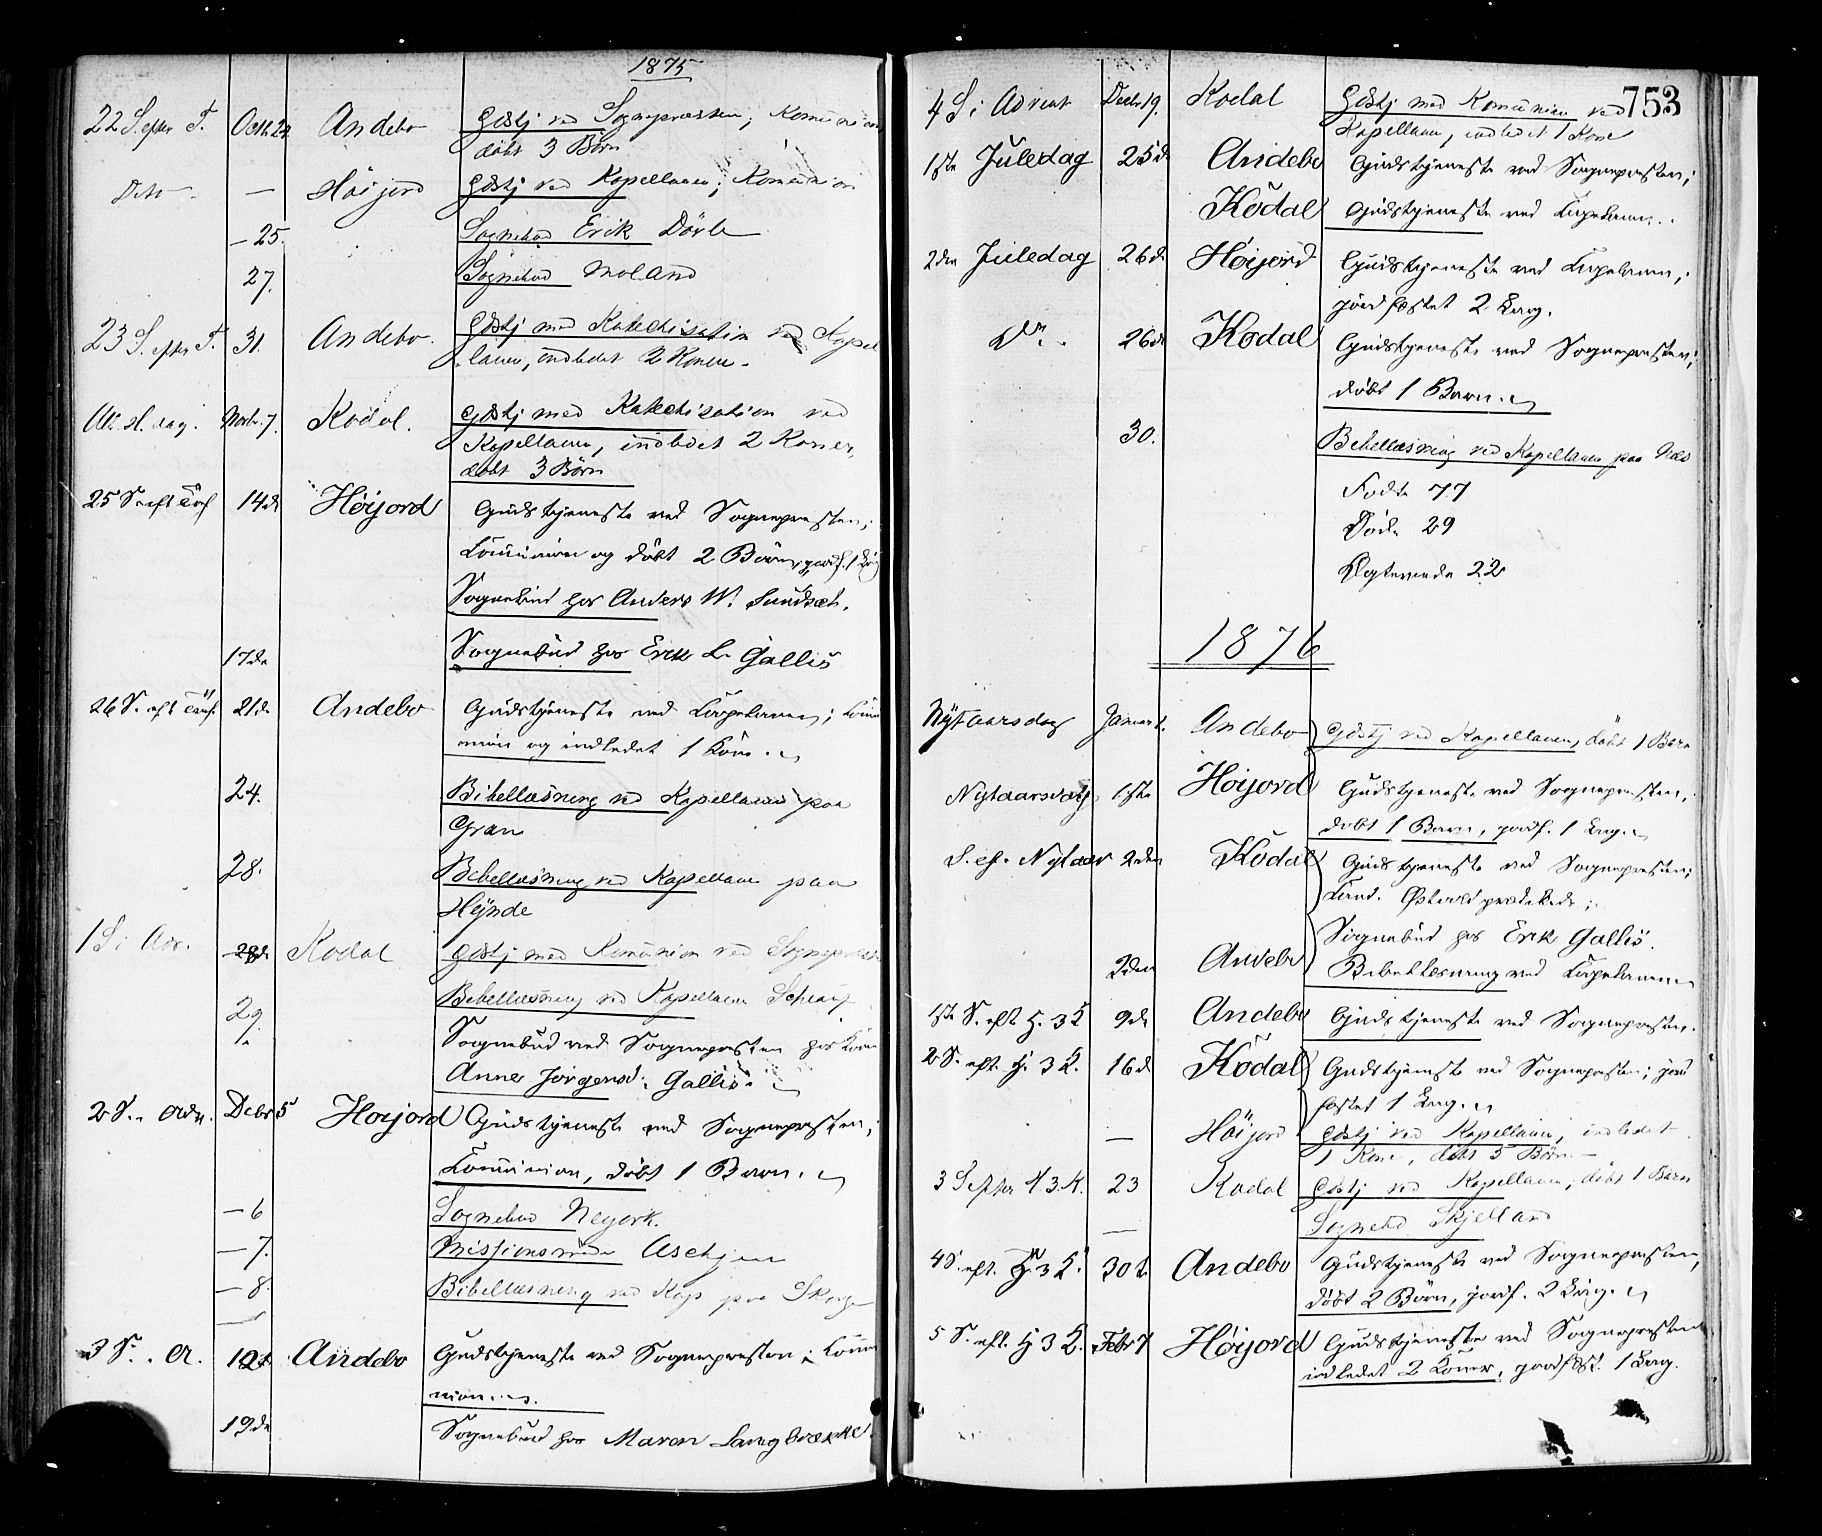 1875
22 S. efter T. Octb. 24 Andebo Gdstj ved Sognepræsten; Komunion
döbt 3 Börn
Dito — Höijord Gdstj ved Kapellanen; Komunion
— 25. Sognebud Erik Dörle
27. Sognebud Moland
23 S. efter T. 31. Andebo. Gdstj med Katechisation ved Kapel
lanen, indledet 2 Koner.
All. H. dag. Novbr. 7. Kodal. Gdstj med Katechisation ved
Kapellanen, indledet 2 Koner,
döbt 3 Börn
25 S. eft Trf 14de Höijord Gudstjeneste ved Sognepresten;
Communion og döbt 2 Börn, jordf. 1 Lig
Sognebud hos Anders W. Sundset.
17de Sognebud hos Erik L. Gallis
26 S. eft Trf. 21de Andebo Gudstjeneste ved Capelanen; Comu
nion og indledet 1 Kone.
24. Bibellæsning ved Kapellanen paa
Gran
28. Bibellæsning ved Kapellanen paa
Hynde
1 S. i Adv. 28de Kodal Gdstj med Komunion ved Sognepræsten
29. Bibellæsning ved Kapellanen
Sognebud ved Sognepresten hos Kone
Anne Jörgensd. Gallis.
2 S. i Adv. Decbr 5 Hoijord Gudstjeneste ved Sognepresten;
Communion, döbt 1 Barn.
— 6 Sognebud Negork.
— 7. Missionsmöde Aschjem
— 8. Bibellæsning ved Kap paa
3 S. i A. 12te Andebo Gudstjeneste ved Sognepresten; Comu
nion.
19de Sognebud hos Maren Langbrække.
753
4 S. i Advent Decbr 19. Kodal Gdstj med Komunion ved
Kapellanen, indledet 1 Kone
1ste Juledag 25de Andebo Gudstjeneste ved Sognepresten;
Kodal Gudstjeneste ved Capelanen.
2den Juledag 26de Höijord Gudstjeneste ved Capelanen;
jordfæstet 2 Lig.
Do. 26de Kodal Gudstjeneste ved Sognepresten;
döbt 1 Barn.
30. Bibellæsning ved Kapellanen paa Næs
Födte 77
Döde 29
Egteviede 22
1876
Nytaarsdag Januar 1. Andebo Gdstj ved Kapellanen, döbt 1 Barn
Nytaarsdag 1ste Höijord Gudstjeneste ved Sognepresten;
döbt 1 Barn, jordf. 1 Lig.
S. ef. Nytaar 2den Kodal Gudstjeneste ved Sognepresten;
Cand. Østvold prædikede;
Sognebud hos Erik Gallis.
2den Andebo Bibellæsning ved Capelanen
1ste S. eft H. 3 K. 9de Andebo Gudstjeneste ved Sognepresten.
2 S. eft. H. 3 K. 16de Kodal Gudstjeneste ved Sognepresten; jord
fæstet 1 Lig.
— Höijord Gdstj ved Kapellanen, indledet
1 Kone, döbt 3 Börn. —
3 S efter H 3. K. 23 Kodal Gdstj ved Kapellanen, döbt 1 Barn
— Sognebud Skjelland
4 S. eft. H. 3 K. 30te Andebo Gudstjeneste ved Sognepresten,
döbt 2 Börn, jordf. 2 Lig.
5 S. eft. H 3 K. Febr 7 Höijord Gudstjeneste ved Sognepresten
indledet 2 Koner, jordfæst. 1 Lig.